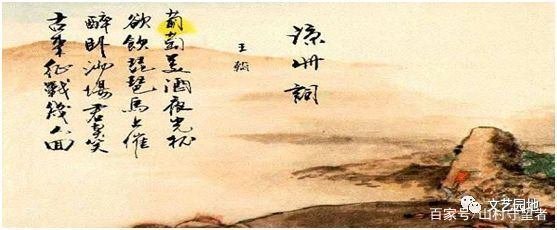 涼州詞
王翰
葡萄美酒夜光杯
欲飲琵琶馬上催
醉卧沙場君莫笑
古來征戰幾人回
文艺园地
百家号/山村守望者